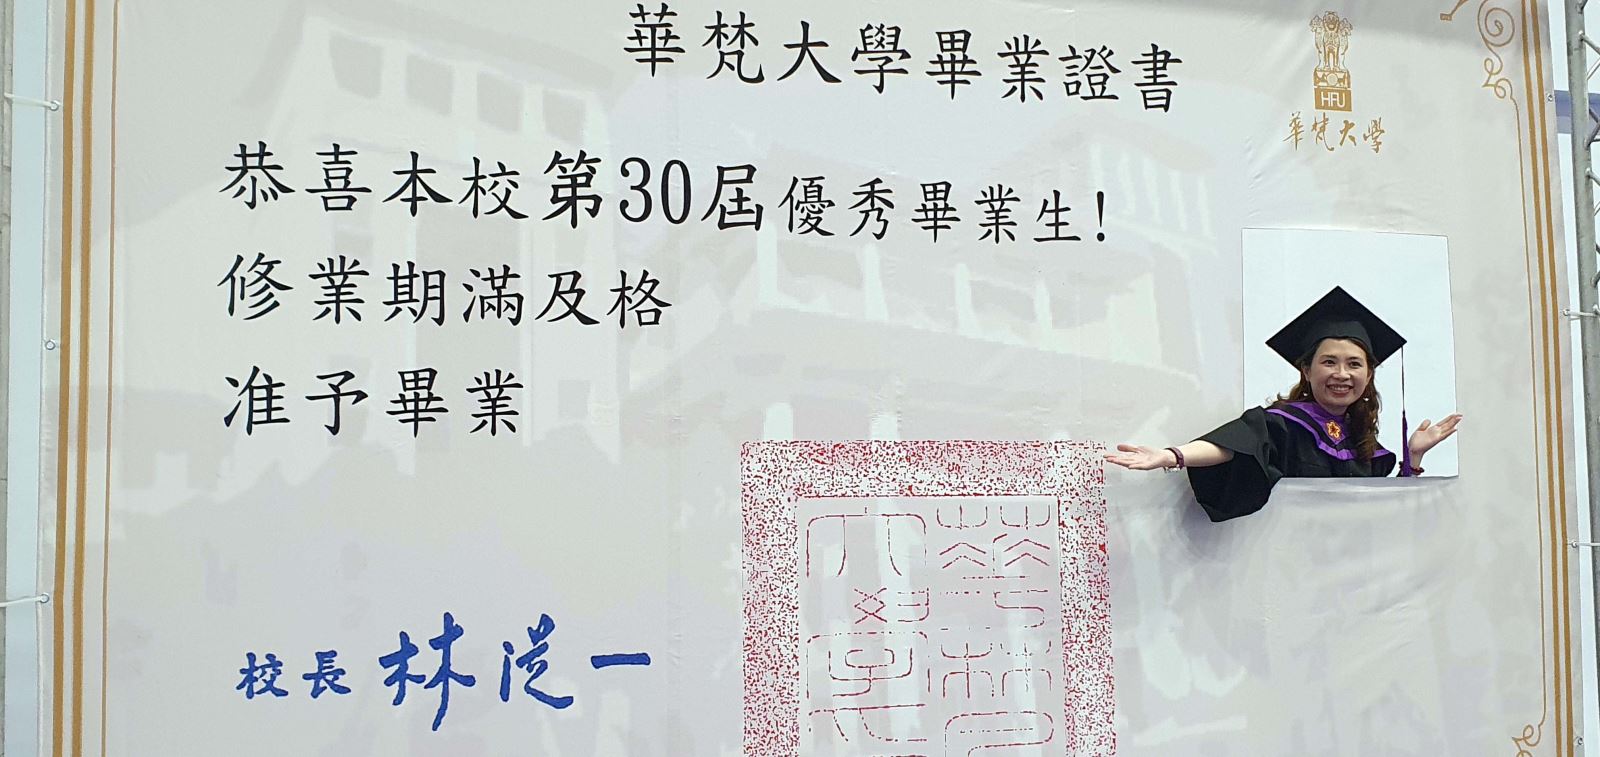 華梵大學畢業證書
HFU
華梵大學
恭喜本校第30屆優秀畢業生!
修業期滿及格
准予畢業
校長 林從一